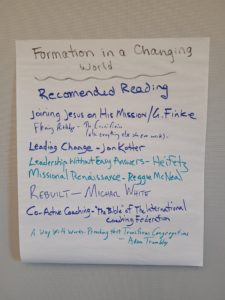 Formation in a Changing
World
Recomended Reading
Joining Jesus on His Mission/G. Finke
Fleming Rutledge - The Crucifixion
(also everything else she ever wrote)
Leading Change - Jon Kotter
Leadership Without Easy Answers - Heifetz
Missional Renaissance - Reggie McNeal
REBUILT - MICHAEL WHITE
Co-Active Coaching - "The Bible" of The International
Coaching Federation
A Way With Words: Preaching that Transforms Congregations
- Adam Trambley